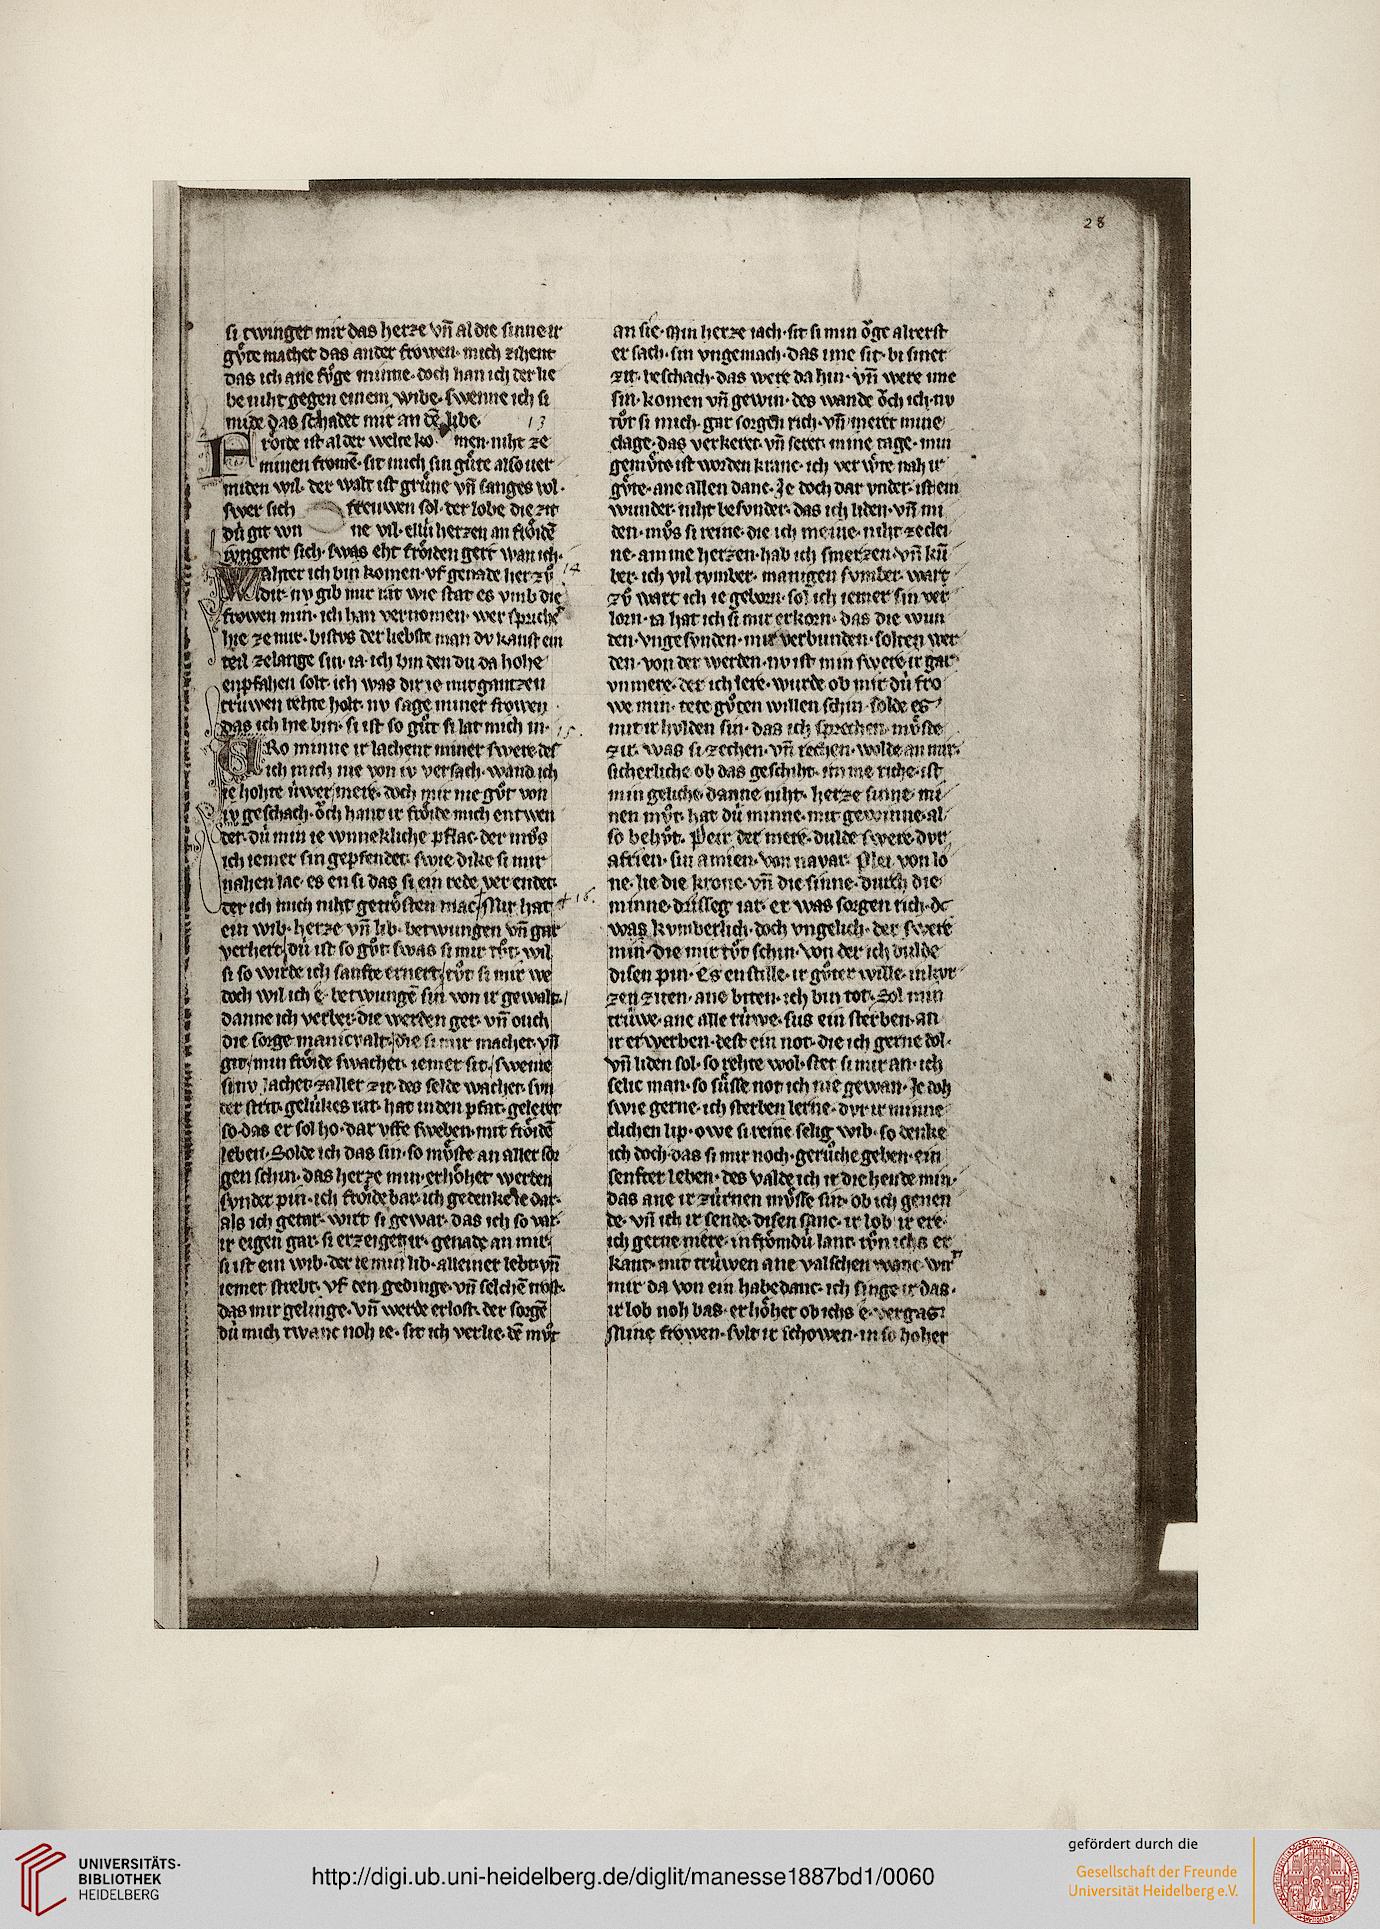 28
si twinget mir das herze vn̄ al die sinne ir
gv̊te machet das ander frowen· mich zihent
das ich ane fv̊ge minne· doch han ich der lie
be niht gegen einem wibe· swenne ich si
mide das schadet mir an dē libe·
13
Froͤide ist al der welte ko men· niht ze
minen fromē· sit mich sin gv̊te also ver
miden wil· der walt ist grv̊ne vn̄ sanges vol·
swer sich freuwen sol· der lobe die zit
dú git wn ne vil· ellú herzen an froͤidē
iungent sich· swas eht froͤiden gert wan ich·
Wahter ich bin komen· vf genade her zv̊
14
dir· nv gib mir rat wie stat es vmb die
frowen min· ich han vernomen· wer sprichet
hie ze mir· bistvs der liebste man dv kanst ein
teil zelange sin· ia· ich bin den du da hohe
enpfahen solt· ich was dir ie mit gantzen
trúwen rehte holt· nv sage miner frowen
das ich hie bin· si ist so gv̊t si lat mich in·
15.
Fro minne ir lachent miner swere· des
ich mich nie von iv versach· wand ich
ie hohte úwer mere· doch mir nie gv̊t von
iv geschach· ǒch hant ir froͤide mich entwen
det· dú min ie wnnekliche pflac· der mv̊s
ich iemer sin gepfendet· swie dike si mir
nahen lac· es en si das si ein rede verendet·
der ich mich niht getroͤsten mac· Mir hat
+ 16.
ein wib· herze vn̄ lib· betwungen vn̄ gar
verhert· dú ist so gv̊t· swas si mir tv̊t· wil
si so wirde ich sanfte ernert· tv̊t si mir we
doch wil ich e· betwungē sin von ir gewalt·
danne ich verber· die werden ger· vn̄ ouch
die sorge manicvalt· die si mir machet· vn̄
git· min froͤide swachet· iemer sit· swenne
si nv lachet· zaller zit· des selde wachet· svn
der strit· gelúkes rat· hat in den pfat· geleret
so· das er sol ho· dar vffe sweben· mit froͤidē
leben· Solde ich das sin· so mv̊ste an aller sor
gen schin· das herze min· erhoͤhet werden
svnder pin· ich froͤide bar· ich gedenke ie dar·
als ich getar· wirt si gewar· das ich so var·
ir eigen gar· si erzeiget ir· genade an mir·
si ist ein wib· der ie min lib· alleinet lebt· vn̄
iemer strebt· vf den gedinge· vn̄ selchē trost·
das mir gelinge· vn̄ werde erlost· der sorgē
dú mich twanc noh ie· sit ich verlie· dē mv̊t
an sie· Min herze iach· sit si min ǒge alrerst
er sach· sin vngemach· das ime sit· bi siner
zit· beschach· das were da hin· vn̄ were ime
sin· komen vn̄ gewin· des wande ǒch ich· nv
tv̊t si mich· gar sorgen rich· vn̄ meret mine
clage· das verkeret· vn̄ seret· mine tage· min
gemv̊te ist worden kranc· ich ver wv̊te nah ir
gv̊te· ane allen danc· Je doch dar vnder· ist ein
wunder· niht besvnder· das ich liden· vn̄ mi
den· mv̊s si reine· die ich meine· niht ze clei
ne· an ime herzen· hab ich smerzen· vn̄ kū
ber· ich vil tvmber· manigen svmber· wart
zv̊ wart ich ie geborn· sol ich iemer sin ver
lorn· ia hat ich si mir erkorn· das die wun
den· vngesvnden· mir verbunden· solten wer
den· von der werden· nv ist min swere· ir gar
vnmere· der ich lere· wurde ob mir dú fro
we min· tete gv̊ten willen schin· solde es
mit ir hvlden sin· das ich sprechen· mv̊ste
zir· was si zechen· vn̄ rechen· wolde an mir·
sicherliche ob das geschiht· nimme riche· ist
min geliche· danne niht· herze sinne· mi
nen mv̊t· hat dú minne· mit gewinne· al
so behv̊t· Petr der mere· dulde swere· dvr
afrien· sin amien· von navar· Plei von lo
ne· lie die krone· vn̄ die sinne· durch die
minne· drisseg iar· er was sorgen rich· dc
was kvmberlich· doch vngelich· der swere
min· die mir tv̊t schin· von der ich dulde
disen pin· Es en stille· ir gv̊ter wille· in kvr
zen ziten· ane biten· ich bin tot· Sol min
trúwe· ane alle rúwe· sus ein sterben· an
ir erwerben· dest ein not· die ich gerne dol·
vn̄ liden sol· so rehte wol· stet si mir an· ich
selic man· so sv̊sse not ich nie gewan· Je doh
swie gerne· ich sterben lerne· dvr ir minne
clichen lip· owe si reine selig wib· so denke
ich doch· das si mir noch· gerv̊che geben· ein
senfter leben· des valde ich ir die hende min·
das ane ir zúrnen mv̊sse sin· ob ich genen
de· vn̄ ich ir sende· disen sanc· ir lob ir ere·
ich gerne mere· in froͤmdú lant· tv̊n ichs er
kant· mit trúwen ane valschen wanc· wirt
mir da von ein habedanc· ich singe ir das·
ir lob noh bas· erhoͤhet ob ichs e· vergas·
Mine frowen· svlt ir schowen· in so hoher
UNIVERSITÄTS-
BIBLIOTHEK
HEIDELBERG
http://digi.ub.uni-heidelberg.de/diglit/manesse1887bd1/0060
gefördert durch die
Gesellschaft der Freunde
Universität Heidelberg e.V.